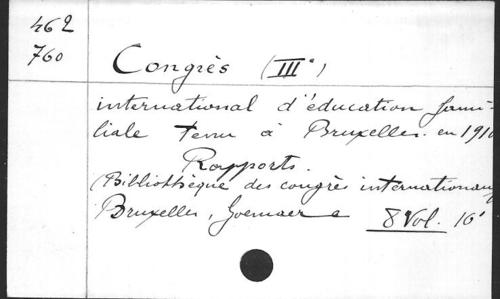 462
760
Congrès (III°)
international d'éducation fami-
liale tenu à Bruxelles. en 1910
Rapports.
(Bibliothèque des congrès internationaux
Bruxelles, Goemaere 8 Vol. 16°